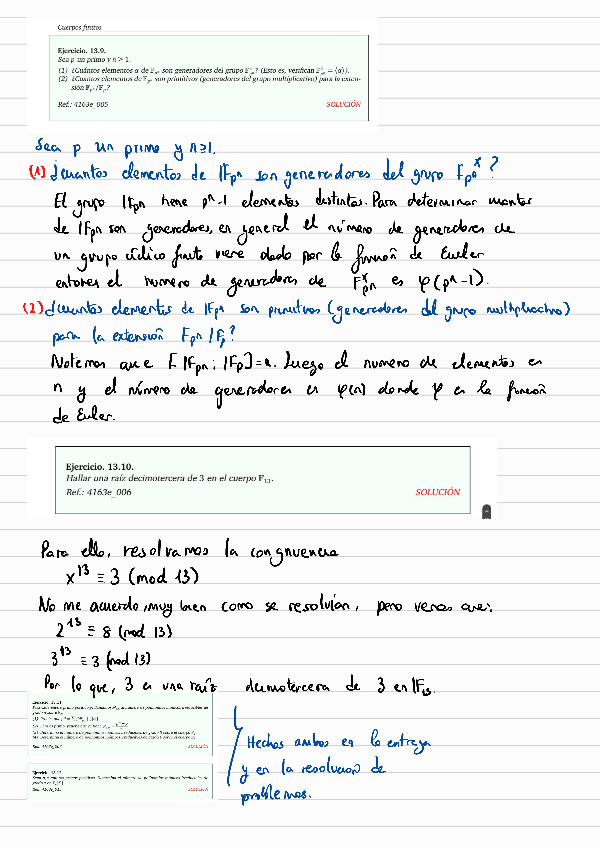 Cuerpos finitos
Ejercicio. 13.9.
Sea p un primo y n ≥ 1.
(1) ¿Cuántos elementos α de 𝔽pⁿ son generadores del grupo 𝔽*pⁿ? (Esto es, verifican 𝔽*pⁿ = ⟨α⟩).
(2) ¿Cuantos elementos de 𝔽pⁿ son primitivos (generadores del grupo multiplicativo) para la exten-
sión 𝔽pⁿ/𝔽p?
Ref.: 4163e_005 SOLUCIÓN
Sea p un primo y n≥1.
(1) ¿Cuantos elementos de 𝔽pⁿ son generadores del grupo Fpⁿˣ?
El grupo 𝔽pⁿ tiene pⁿ-1 elementos distintos. Para determinar cuantos
de 𝔽pⁿ son generadores, en general el número de generadores de
un grupo cíclico finito viene dado por la función de Euler
entonces el numero de generadores de Fˣpⁿ es φ(pⁿ-1).
(2) ¿Cuantos elementos de 𝔽pⁿ son primitivos (generadores del grupo multiplicativo)
para la extensión Fpⁿ/Fp?
Notemos que [𝔽pⁿ : 𝔽p]=n. Luego el numero de elementos es
n y el número de generadores es φ(n) donde φ es la función
de Euler.
Ejercicio. 13.10.
Hallar una raíz decimotercera de 3 en el cuerpo 𝔽₁₃.
Ref.: 4163e_006 SOLUCIÓN
Para ello, resolvamos la congruencia
x¹³ ≡ 3 (mod 13)
No me acuerdo muy bien como se resolvian, pero vemos que:
2¹³ ≡ 8 (mod 13)
3¹³ ≡ 3 (mod 13)
Por lo que, 3 es una raíz decimotercera de 3 en 𝔽₁₃.
SOLUCIÓN
Hechos ambos en la entrega
y en la resolucion de
problemas.
SOLUCIÓN